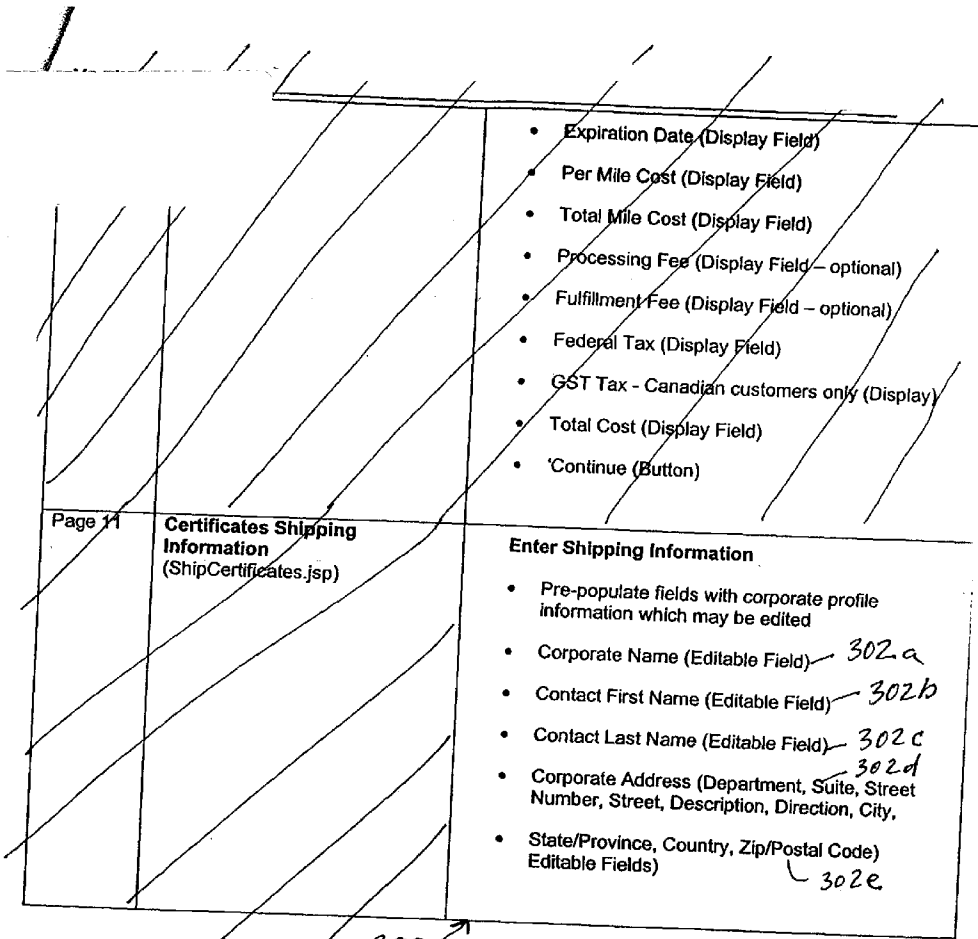 • Expiration Date (Display Field)
• Per Mile Cost (Display Field)
• Total Mile Cost (Display Field)
• Processing Fee (Display Field – optional)
• Fulfillment Fee (Display Field – optional)
• Federal Tax (Display Field)
• GST Tax - Canadian customers only (Display)
• Total Cost (Display Field)
• 'Continue (Button)
Page 11
Certificates Shipping
Information
(ShipCertificates.jsp)
Enter Shipping Information
• Pre-populate fields with corporate profile
information which may be edited
• Corporate Name (Editable Field) 302a
• Contact First Name (Editable Field) 302b
• Contact Last Name (Editable Field) 302c
302d
• Corporate Address (Department, Suite, Street
Number, Street, Description, Direction, City,
• State/Province, Country, Zip/Postal Code)
Editable Fields)
302e